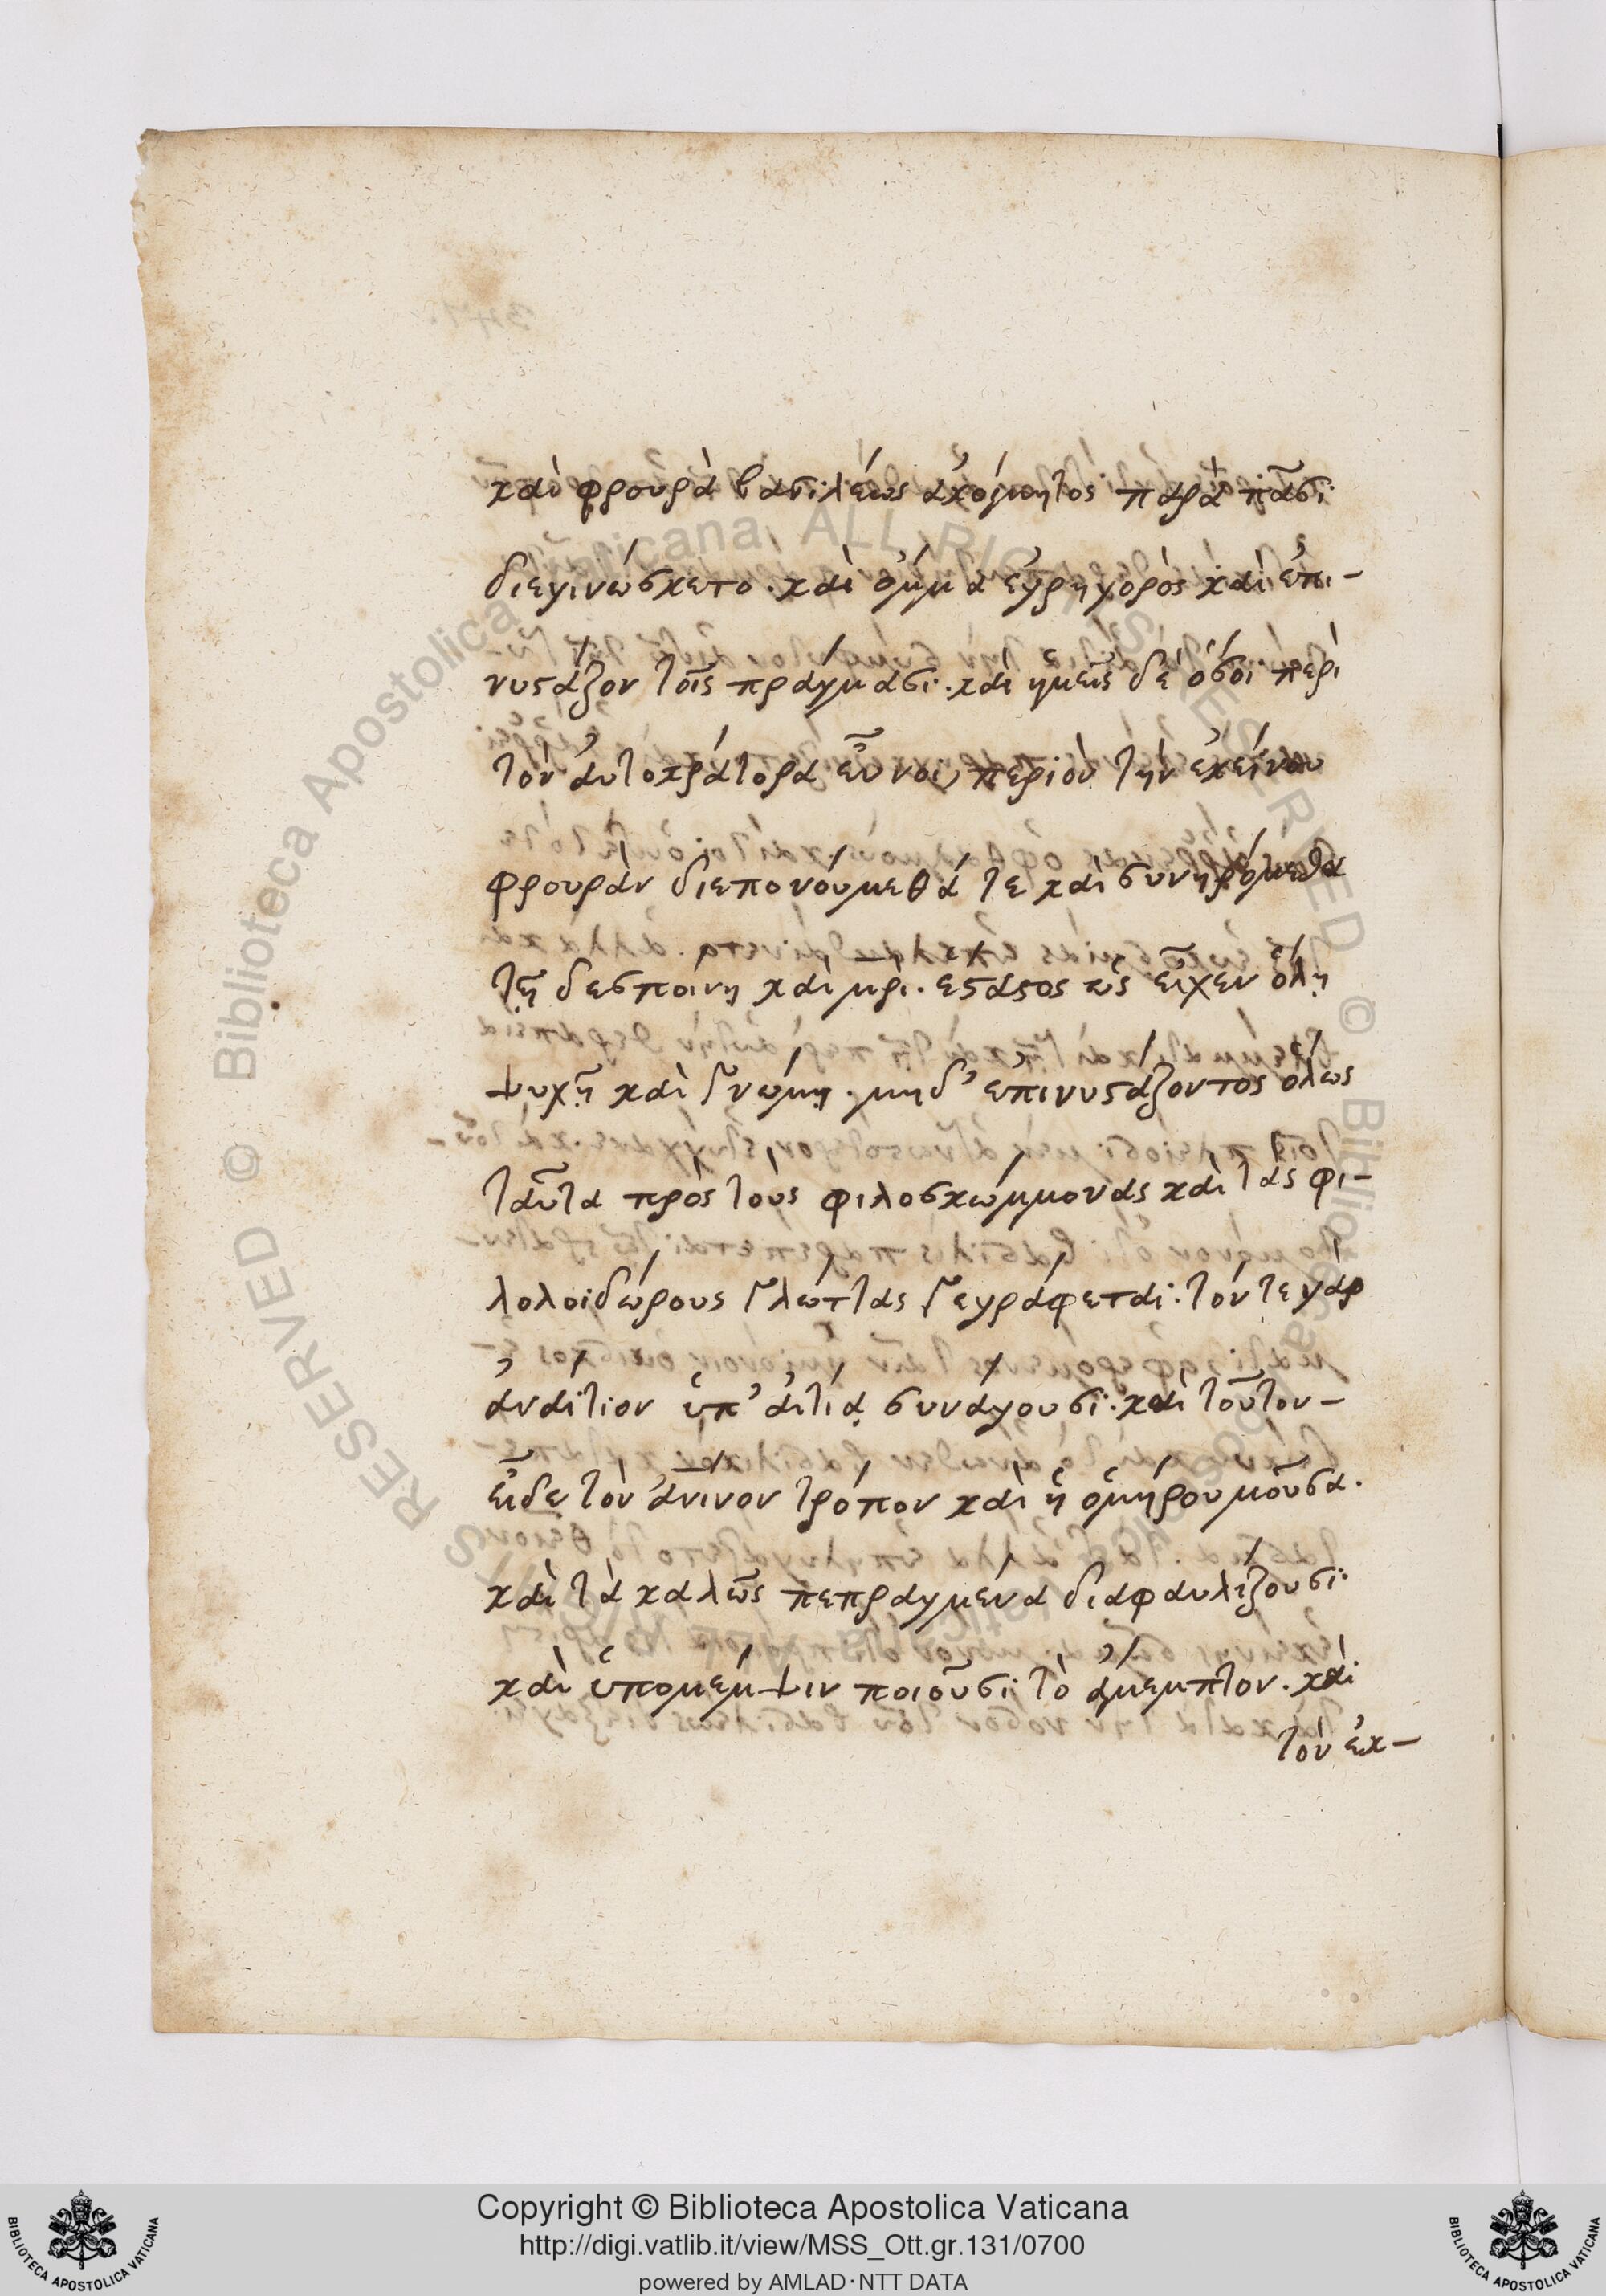 καὶ φρουρὰ βασιλέως ἀκοίμητος παρὰ πᾶσι
διεγινώσκετο. καὶ ὄμμα ἐγρηγορὸς καὶ ἐπι-
νυστάζον τοῖς πράγμασι. καὶ ἡμεῖς δὲ ὅσοι περὶ
τὸν ἀυτοκράτορα εὖνοι, περὶ οὖ τὴν ἐκείνου
φρουρὰν διεπονούμεθά τε καὶ συνηρόμεθα
τῇ δεσποίνῃ καὶ μρι. ἕκαστος ὡς εἶχεν ὅλῃ
ψυχῇ καὶ γνώμῃ. μηδ' ἐπινυστάζοντος ὅλως
ταῦτα πρὸς τοὺς φιλοσκώμμονας καὶ τὰς φι-
λολοιδώρους γλώττας γεγράφεται. τόν τε γὰρ
ἀναίτιον ὑπ' αἰτίᾳ συνάγουσι. καὶ τοῦτον-
εἶδε τὸν ἀνινον τρόπον καὶ ἡ ὁμήρου μοῦσα.
καὶ τὰ καλῶς πεπραγμένα διαφαυλίζουσι
καὶ ὑπομέμψιν ποιοῦσι τὸ ἄμεμπτον. καὶ
τὸν ἑκ-
Copyright © Biblioteca Apostolica Vaticana
http://digi.vatlib.it/view/MSS_Ott.gr.131/0700
powered by AMLAD·NTT DATA
BIBLIOTECA APOSTOLICA VATICANA
BIBLIOTECA APOSTOLICA VATICANA